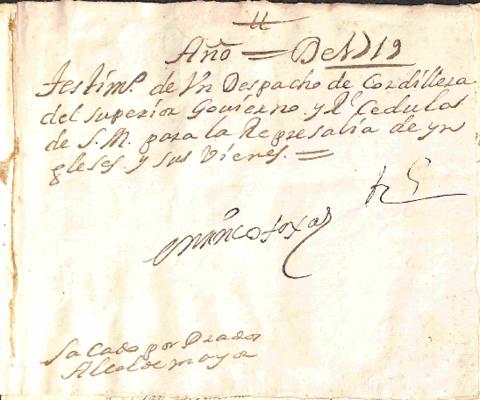 11
Año = De 1719
testimº. de Vn Despacho de Cordillera
del superior Gouierno y Rˢ Cedulas
de S. M. para la Represalia de yn
gleses y sus Vienes. =
Sacado por
Alcalde mayor